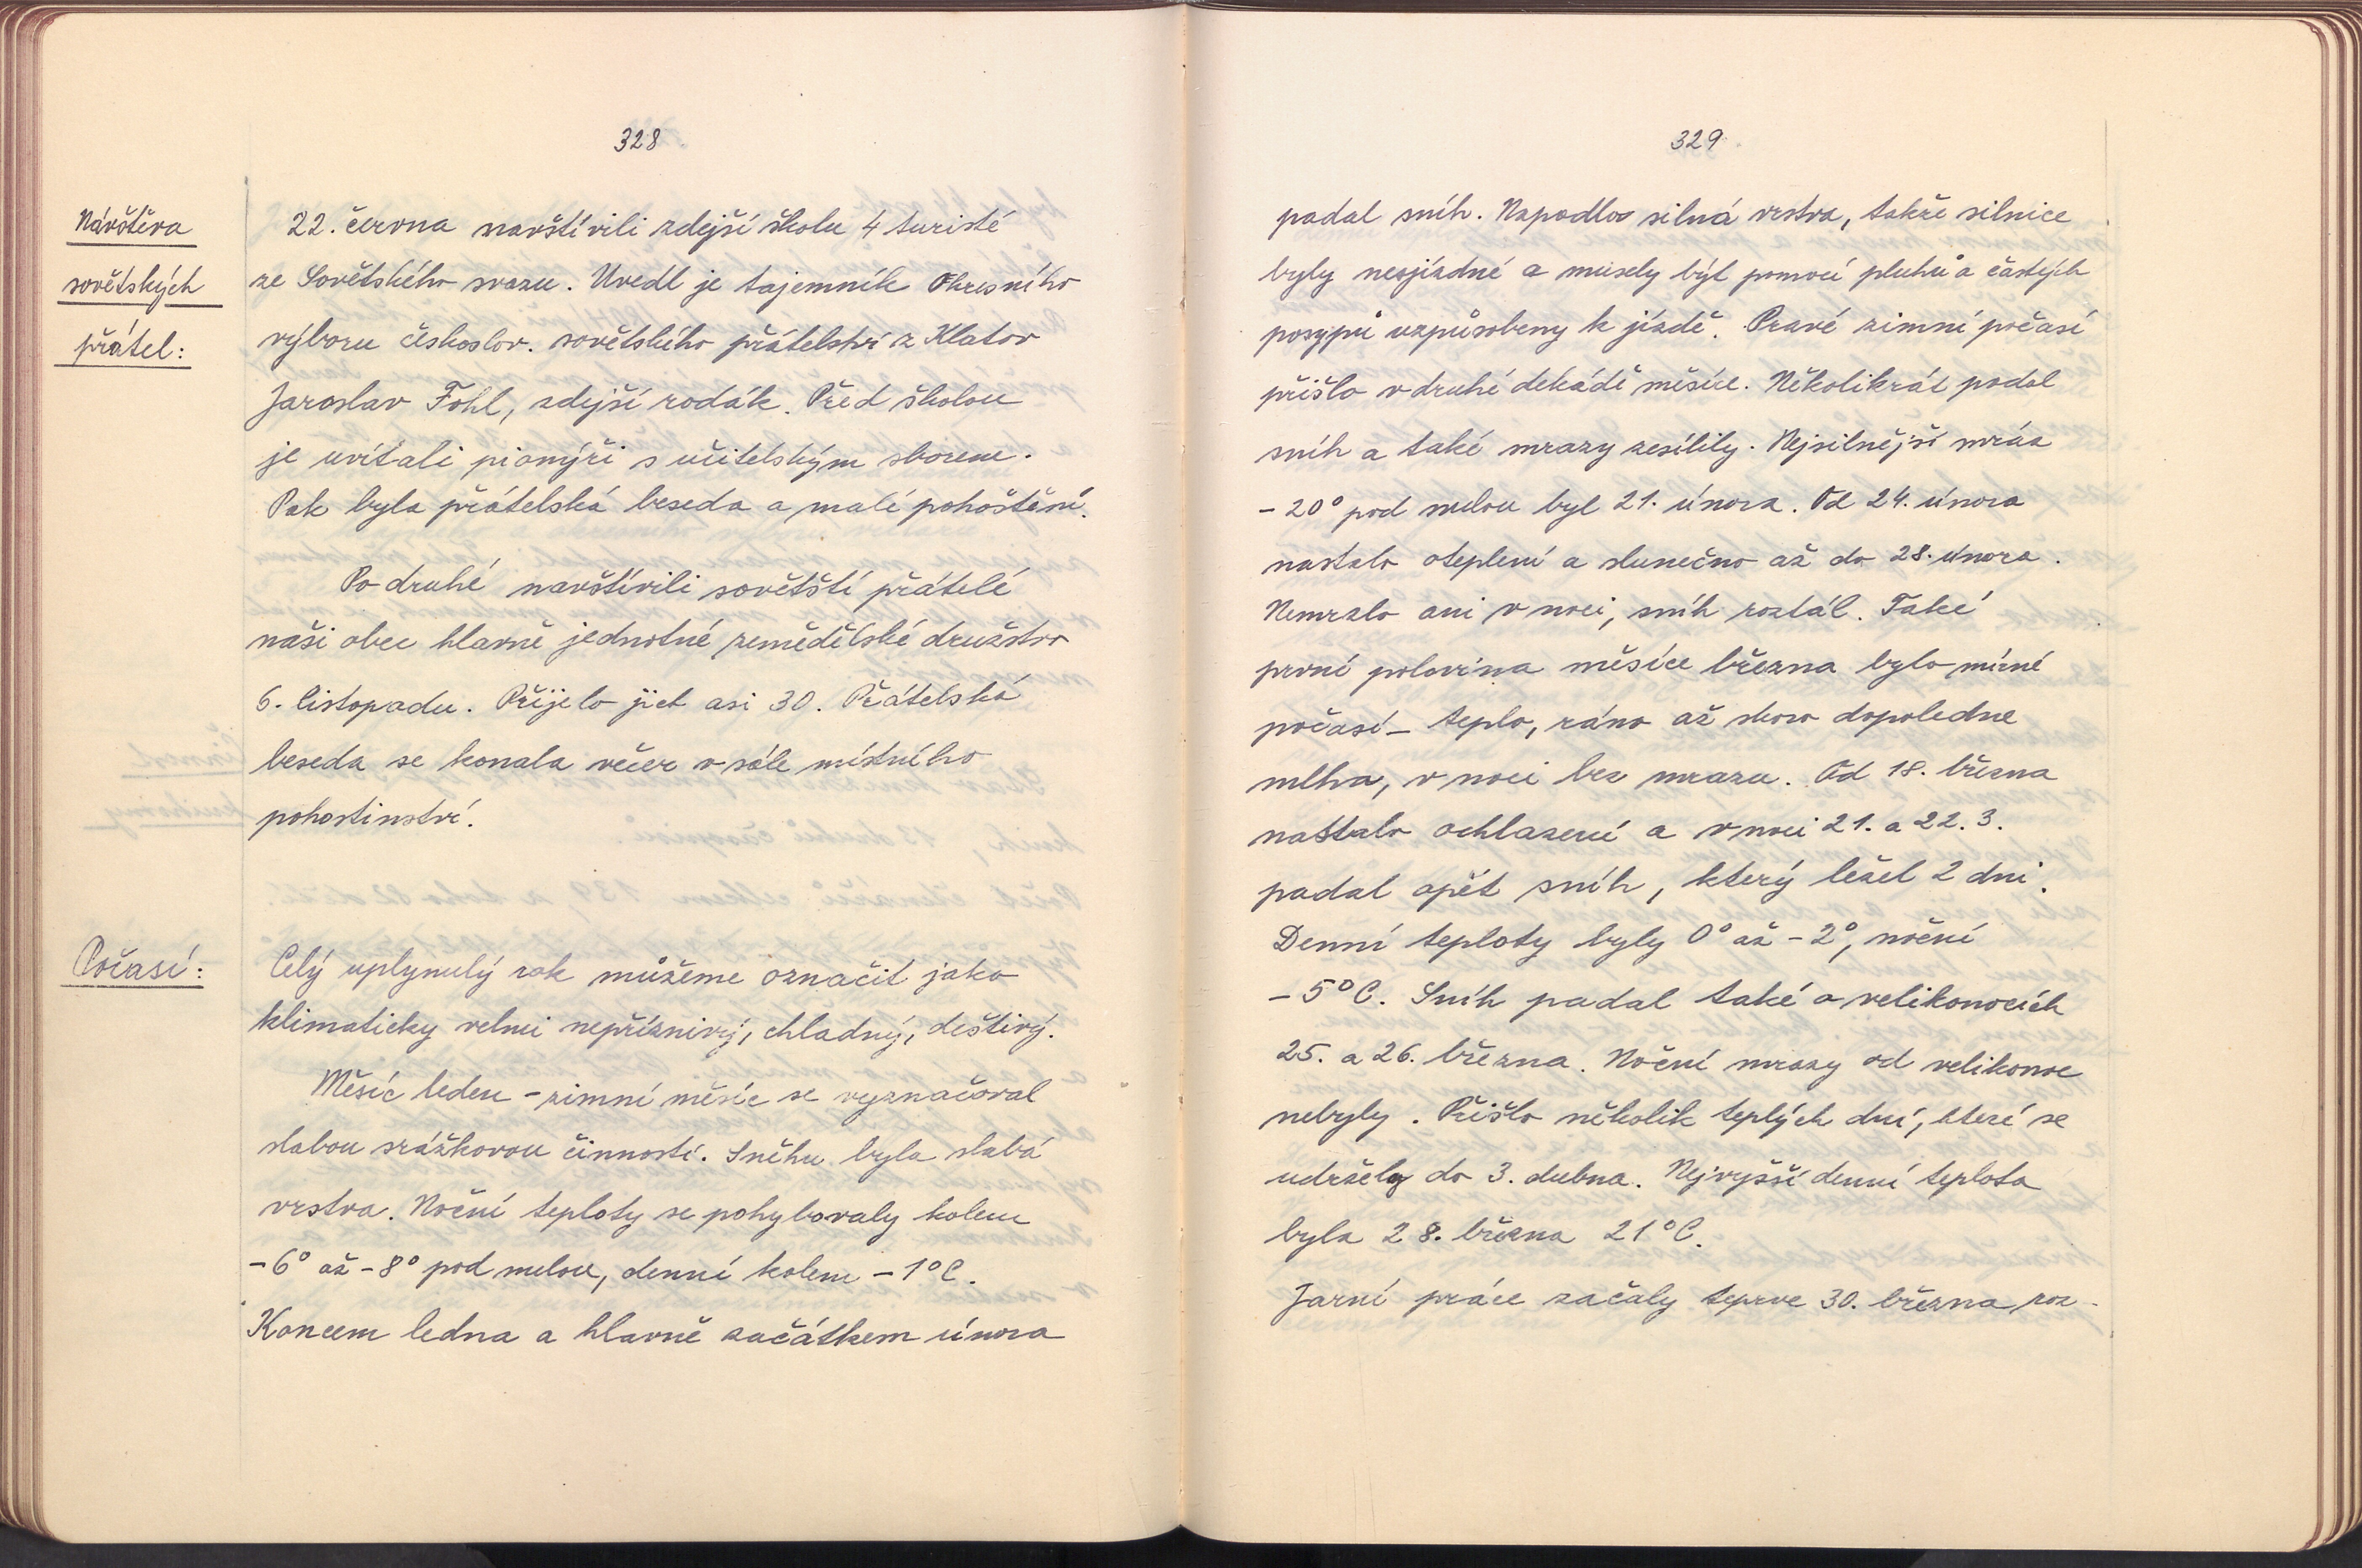 328
Návštěva
sovětských
přátel:
22. června navštívili zdejší školu 4 turisté
ze Sovětského svazu. Uvedl je tajemník Okresního
výboru českoslov. sovětského přátelství z Klatov
Jaroslav Fohl, zdejší rodák. Před školou
je uvítali pionýři s učitelským sborem.
Pak byla přátelská beseda a malé pohoštění.
Po druhé navštívili sovětští přátelé
naši obec hlavně jednotné zemědělské družstvo
6. listopadu. Přijelo jich asi 30. Přátelská
beseda se konala večer v sále místního
pohostinství.
Počasí:
Celý uplynulý rok můžeme označit jako
klimaticky velmi nepříznivý, chladný, deštivý.
Měsíc leden - zimní měsíc se vyznačoval
slabou srážkovou činností. Sněhu byla slabá
vrstva. Noční teploty se pohybovaly kolem
-6° až -8° pod nulou, denní kolem -1°C.
Koncem ledna a hlavně začátkem února
329
padal sníh. Napadla silná vrstva, takže silnice
byly nesjízdné a musely být pomocí pluhů a častých
posypů uzpůsobeny k jízdě. Pravé zimní počasí
přišlo v druhé dekádě měsíce. Několikrát padal
sníh a také mrazy zesílily. Nejsilnější mráz
- 20° pod nulou byl 21. února. Od 24. února
nastalo oteplení a slunečno až do 28. února.
Nemrzlo ani v noci, sníh roztál. Také
první polovina měsíce března bylo mírné
počasí - teplo, ráno až skoro dopoledne
mlha, v noci bez mrazu. Od 18. března
nastalo ochlazení a v noci 21. a 22. 3.
padal opět sníh, který ležel 2 dni.
Denní teploty byly 0° až -2°, noční
-5°C. Sníh padal také o velikonocích
25. a 26. března. Noční mrazy od velikonoc
nebyly. Přišlo několik teplých dní, které se
udržely do 3. dubna. Nejvyšší denní teplota
byla 28. března 21°C.
Jarní práce začaly teprve 30. března, roz-